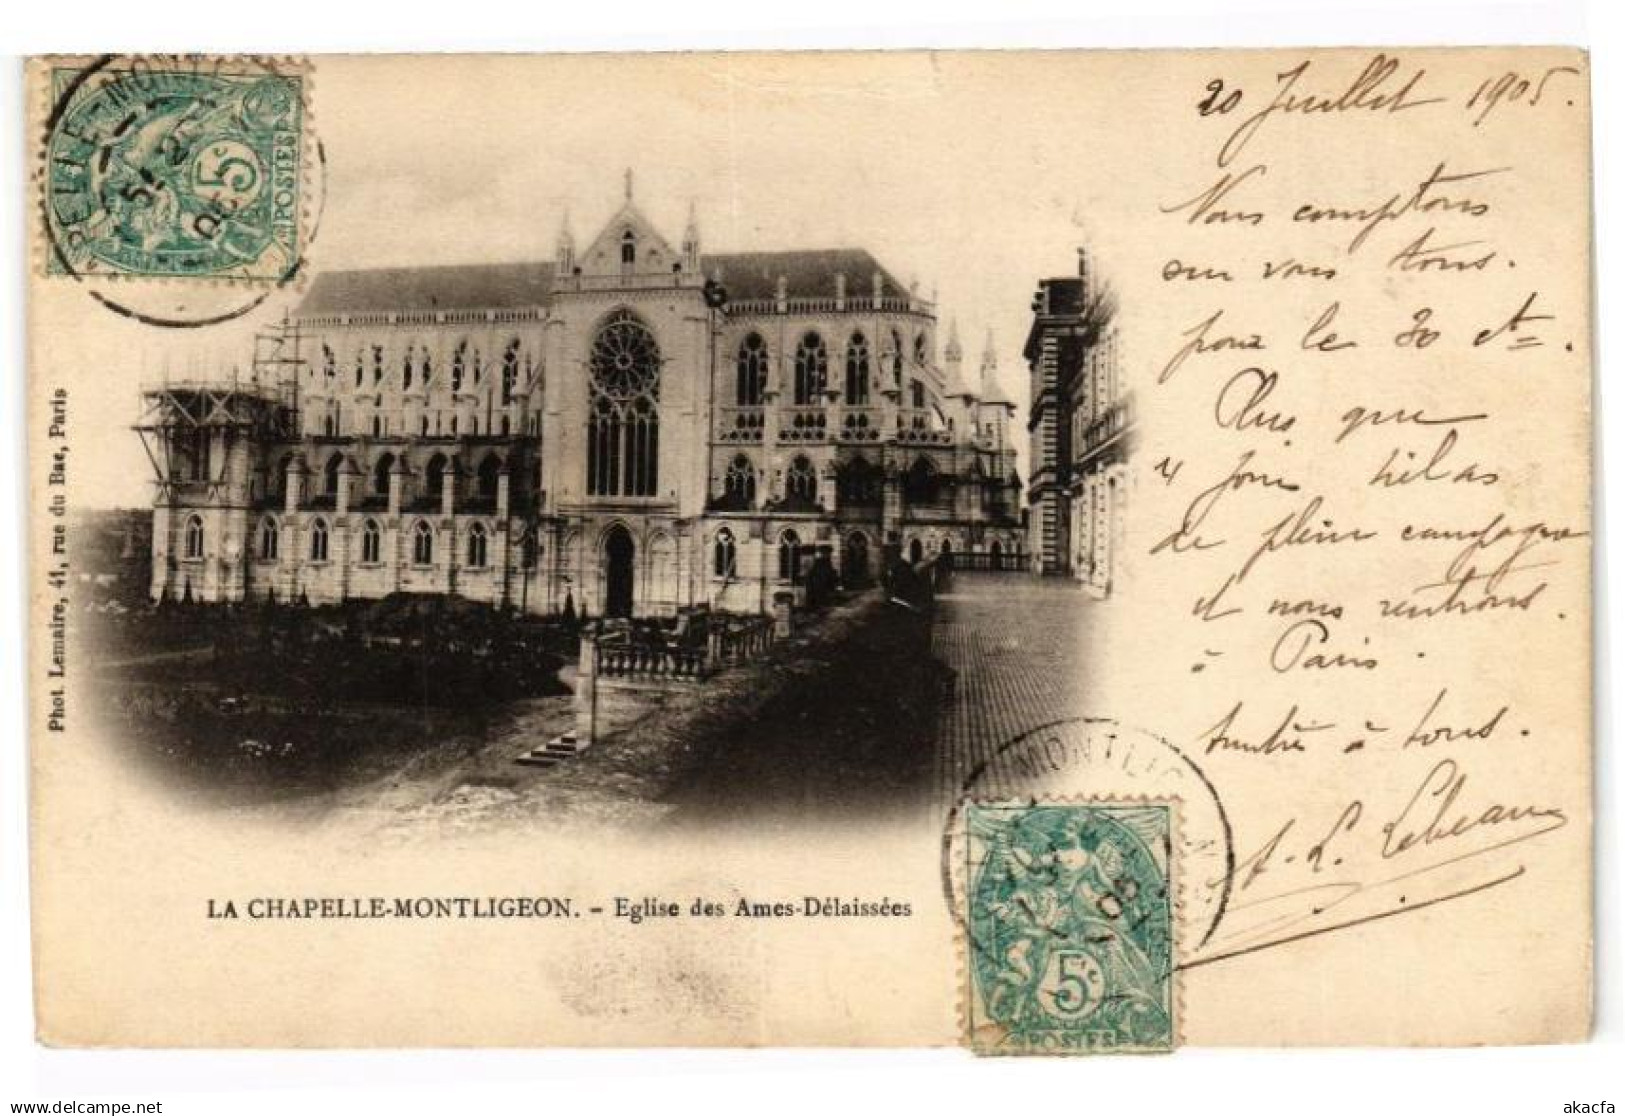 20 Juillet 1905.
Nous comptons
sur vous tous.
pour le 30 ct=.
Plus que
4 jours hélas
de pleine campagne
et nous rentrons.
à Paris.
à tous.
A. L. Lebeau
Phot Lemaire, 41, rue du Bac, Paris
LA CHAPELLE-MONTLIGEON. - Eglise des Ames-Délaissées
PELLE-MONT
5c
POSTES
MONTLIGEON
5c
POSTES
delcampe.net
akacfa